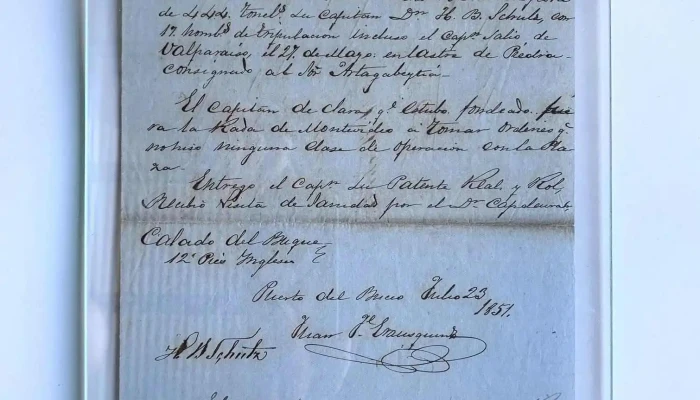 de 444 Tonels. su Capitan Dn. H. B. Schutz, con
17 hombs. de tripulacion incluso el Capn. Salio de
Valparaiso, el 27 de Mayo en lastre de Piedra
consignado al Sor. Artagabeytia
El Capitan declara qe. Estubo fondeado
a la Rada de Montevideo a tomar ordenes q
no hiso ninguna clase de operacion con la Pla
za.
Entrego el Capn. su Patente Real, y Rol,
Recibio Visita de Sanidad por el Dr. Capdeurat
Calado del Buque
12 Pies Ingleses
Puerto del Buceo Julio 23
1851.
Juan
H B Schutz